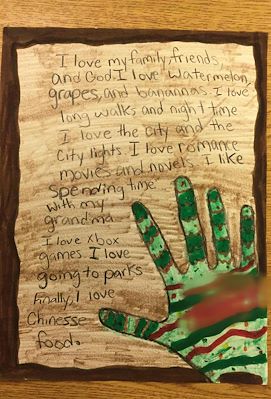 I love my family, friends,
and God. I love watermelon,
grapes, and banannas. I love
long walks and night time
I love the city and the
city lights I love romance
movies and novels. I like
spending time
with my
grandma
I love xbox
games I love
going to parks
Finally, I love
Chinesse
food.